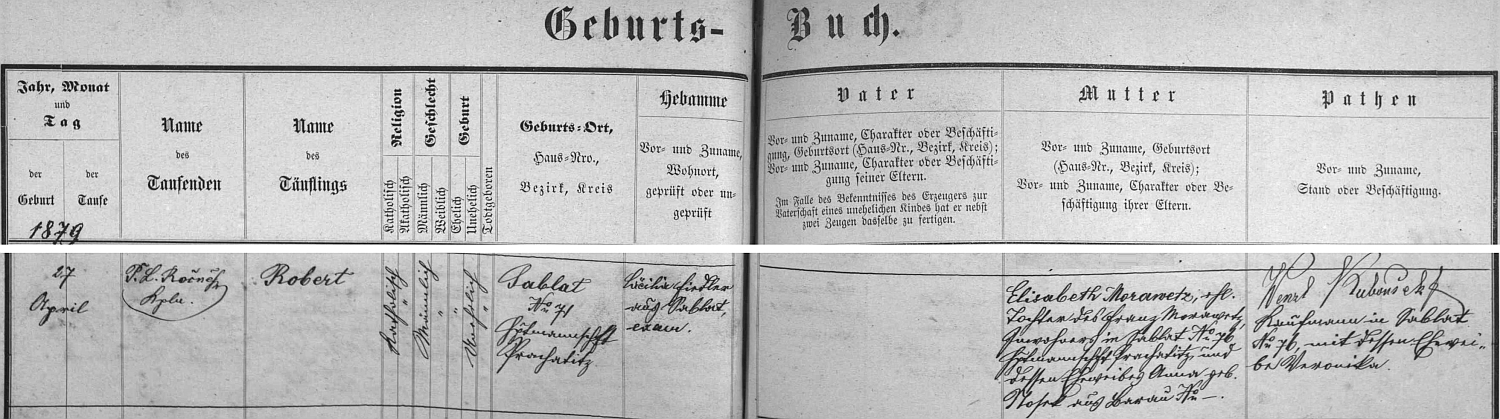 Geburts- Buch.
Jahr, Monat
und
Tag
der
Geburt
der
Taufe
1879
Name
des
Taufenden
Name
des
Täuflings
Religion
Katholisch
Akatholisch
Geschlecht
Männlich
Weiblich
Geburt
Ehelich
Unehelich
Todtgeboren
Geburts-Ort,
Haus-Nro.,
Bezirk, Kreis
Hebamme
Vor- und Zuname,
Wohnort,
geprüft oder un-
geprüft
Vater
Vor- und Zuname, Charakter oder Beschäfti-
gung, Geburtsort (Haus-Nr., Bezirk, Kreis);
Vor- und Zuname, Charakter oder Beschäfti-
gung seiner Eltern.
Im Falle des Bekenntnisses des Erzeugers zur
Vaterschaft eines unehelichen Kindes hat er nebst
zwei Zeugen dasselbe zu fertigen.
Mutter
Vor- und Zuname, Geburtsort
(Haus-Nr., Bezirk, Kreis);
Vor- und Zuname, Charakter oder Be-
schäftigung ihrer Eltern.
Pathen
Vor- und Zuname,
Stand oder Beschäftigung.
27
April
P. L.
Kpln.
Robert
Katholisch
"
Männlich
"
"
Unehelich
"
Sablat
No 71
Hptmannschft
Prachatitz
Cäcilia Fiedler
aus Sablat,
exam.
Elisabeth Morawetz, ehl.
Tochter des Franz Morawetz,
Inwohners in Sablat No 76,
Hptmannschft Prachatitz, und
dessen Eheweibes Anna geb.
Nosek aus Barau No —.
Wenzl Kubouschek
Kaufmann in Sablat
No 76, mit dessen Ehewei-
be Veronika.